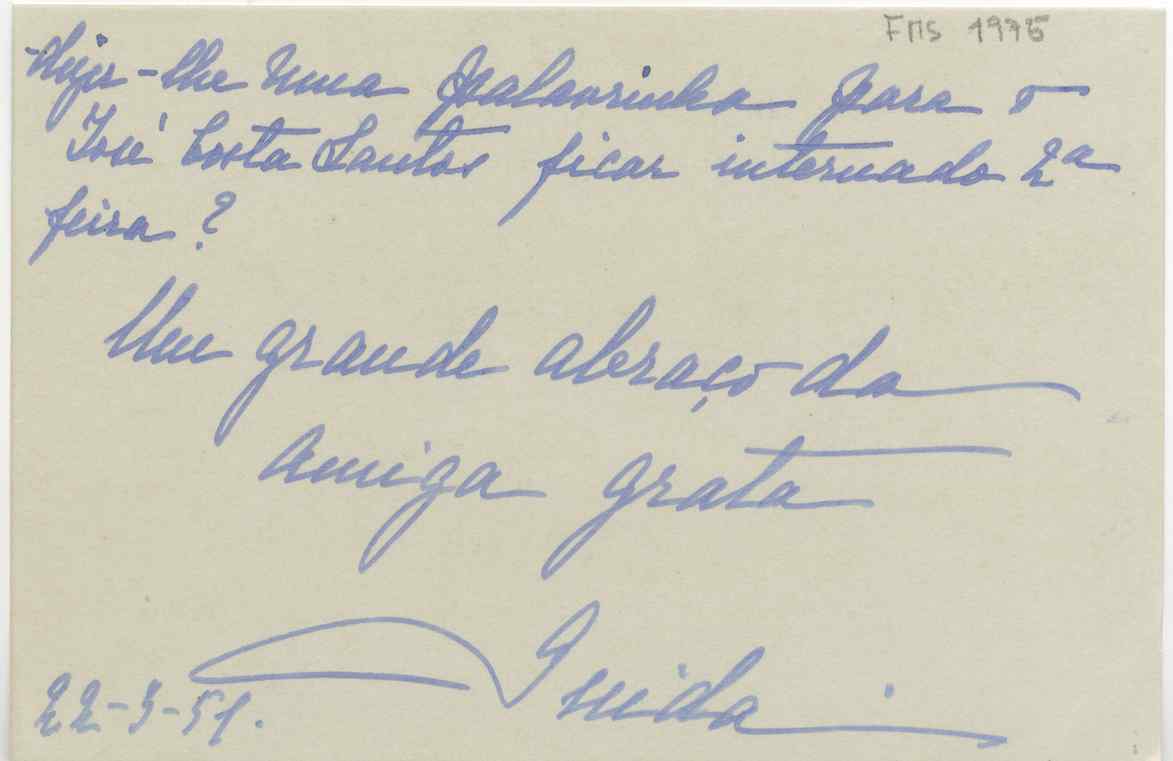 FMS 1975
-lhe uma palavrinha para o
José Costa Santos ficar internado 2ª
feira?
Um grande abraço da
amiga grata
Guida
22-3-51.